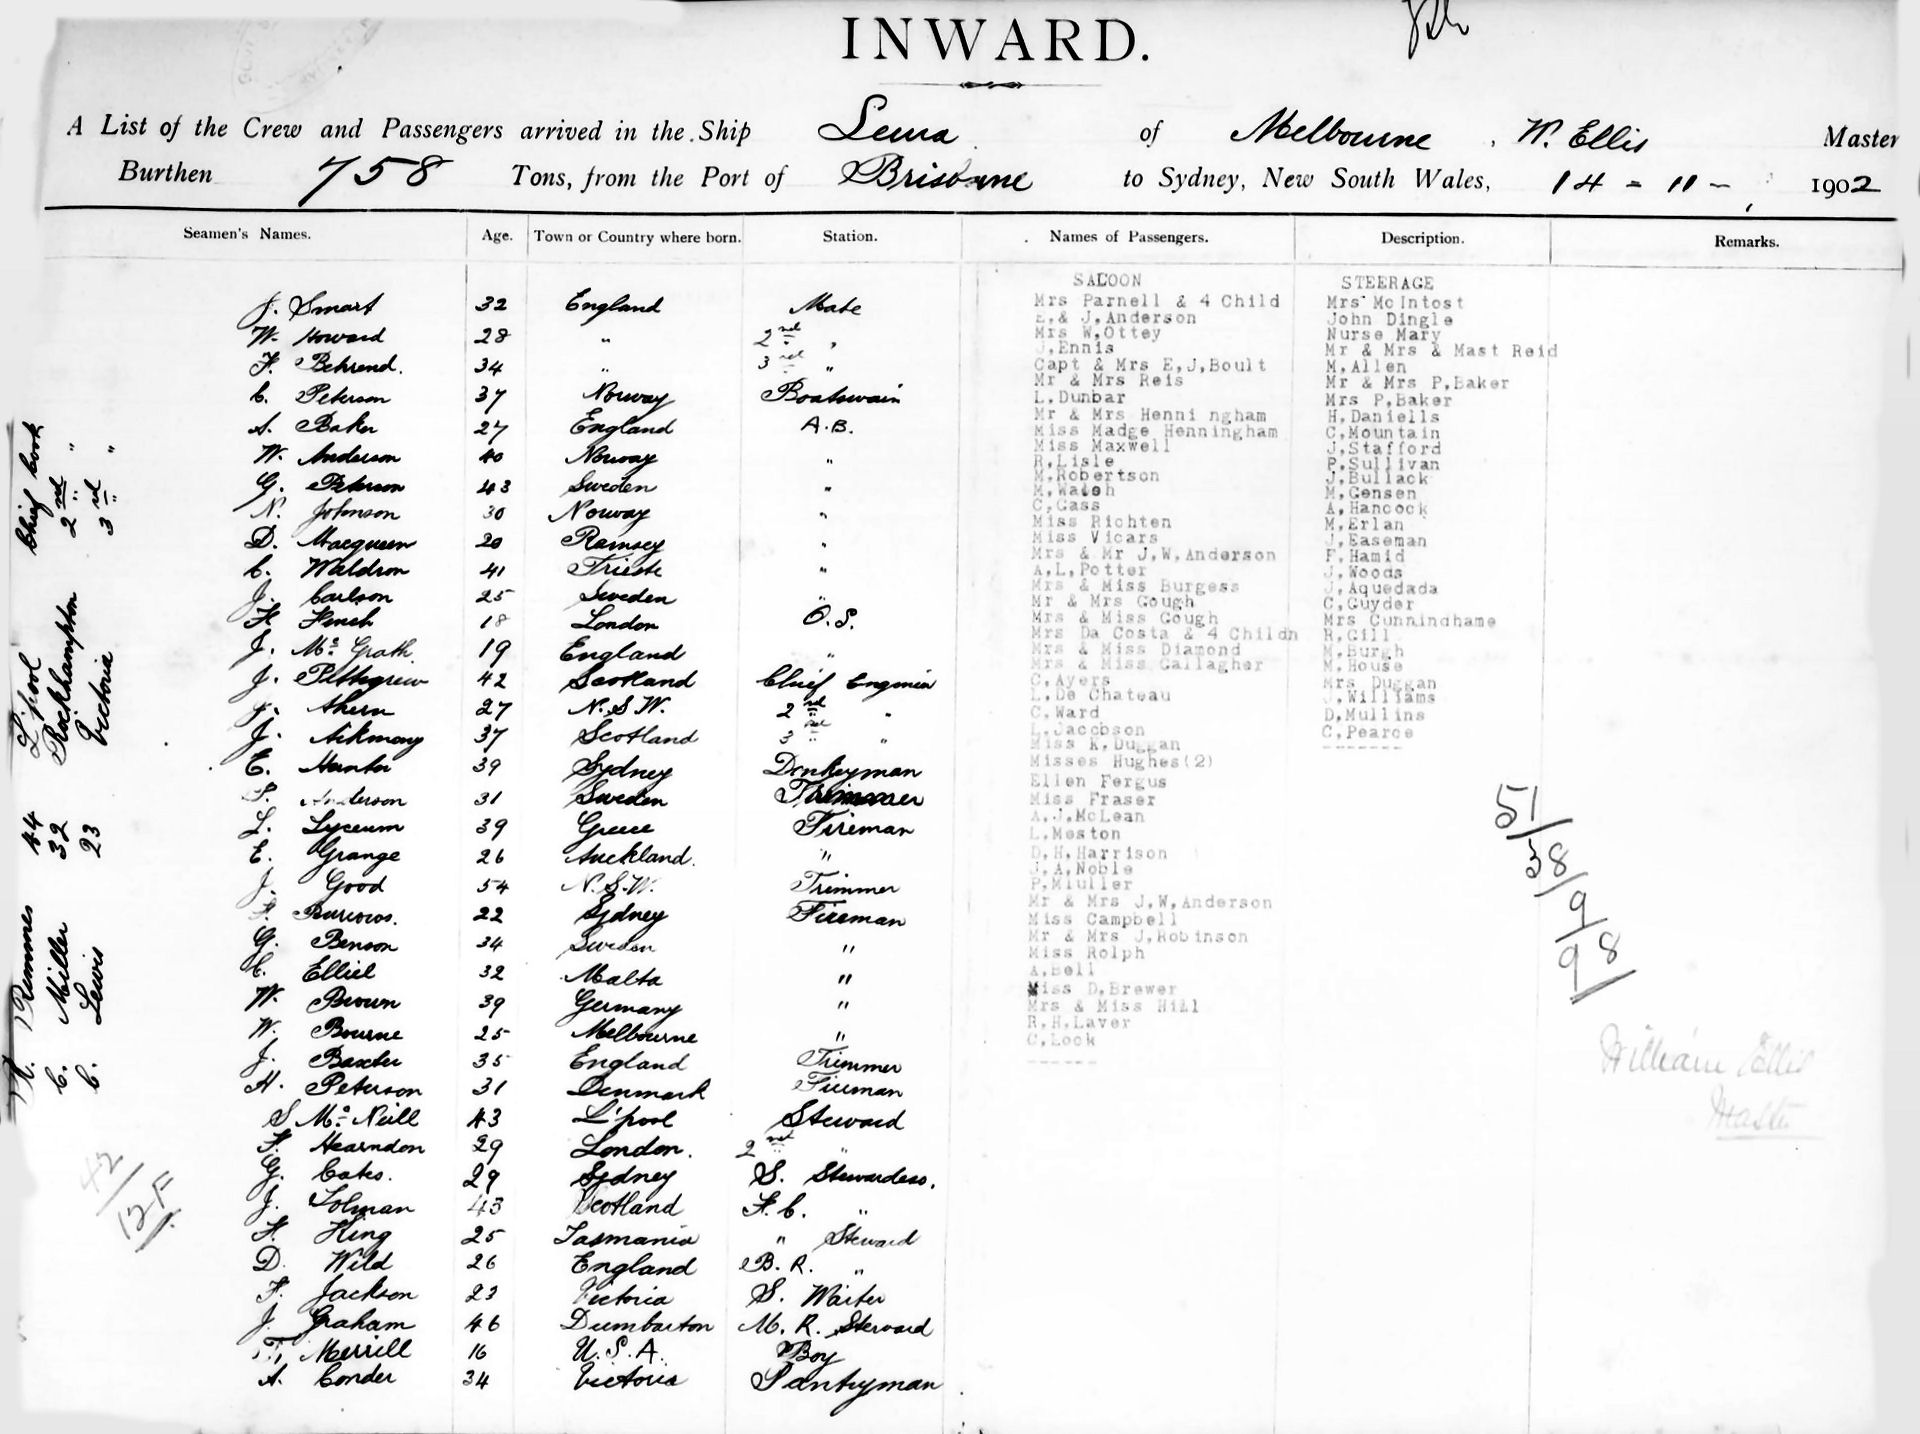 INWARD.
A List of the Crew and Passengers arrived in the Ship Leura of Melbourne, W. Ellis Master
Burthen 758 Tons, from the Port of Brisbane to Sydney, New South Wales, 14 - 11 - 1902
Seamen's Names. Age. Town or Country where born. Station. Names of Passengers. Description. Remarks.
J. Smart 32 England Mate
W. Howard 28 " 2nd "
F. Behrend. 34 " 3rd "
C. Peterson 37 Norway Boatswain
A. Baker 27 England A.B.
W. Anderson 40 Norway "
G. Peterson 43 Sweden "
N. Johnson 30 Norway "
D. Macqueen 20 Ramsey "
C. Waldron 41 Trieste "
J. Carlson 25 Sweden "
H. Finch 18 London O.S.
J. Mc Grath 19 England "
J. Pettigrew 42 Scotland Chief Engineer
J. Ahern 27 N.S.W. 2nd "
J. Aikman 37 Scotland 3rd "
E. Hunter 39 Sydney Donkeyman
Anderson 31 Sweden Trimmer
L. Lyceum 39 Greece Fireman
E. Grange 26 Auckland. "
J. Good 54 N.S.W. Trimmer
F. Burrows. 22 Sydney Fireman
G. Benson 34 Sweden "
C. Elliel 32 Malta "
W. Brown 39 Germany "
W. Bourne 25 Melbourne "
J. Baxter 35 England Trimmer
H. Peterson 31 Denmark Fireman
S Mc Neill 43 L'pool Steward
F. Hearndon 29 London. 2nd "
G. Cates. 29 Sydney S. Stewardess.
J. Tolman 43 Scotland F.C. "
F. King 25 Tasmania " Steward
D. Wild 26 England B.R. "
F. Jackson 23 Victoria S. Waiter
J. Graham 46 Dumbarton M.R. Steward
Merrill 16 U.S.A. Boy
A. Conder 34 Victoria Pantryman
R. Rummes 44 L'pool Chief Cook
C. Miller 32 Rockhampton 2nd "
C. Lewis 23 Victoria 3rd "
42/
12F
SALOON
Mrs Parnell & 4 Child
E.& J.Anderson
Mrs W.Ottey
J.Ennis
Capt & Mrs E,J,Boult
Mr & Mrs Reis
L.Dunbar
Mr & Mrs Henni ngham
Miss Madge Henningham
Miss Maxwell
R.Lisle
M.Robertson
M.Walsh
C,Gass
Miss Richten
Miss Vicars
Mrs & Mr J.W.Anderson
A.L.Potter
Mrs & Miss Burgess
Mr & Mrs Gough
Mrs & Miss Gough
Mrs Da Costa & 4 Childn
Mrs & Miss Diamond
Mrs & Miss Gallagher
C.Ayers
L.De Chateau
C.Ward
L.Jacobson
Miss K.Duggan
Misses Hughes(2)
Ellen Fergus
Miss Fraser
A.J.McLean
L.Meston
D.H.Harrison
J.A.Noble
P.Miuller
Mr & Mrs J.W.Anderson
Miss Campbell
Mr & Mrs J.Robinson
Miss Rolph
A.Bell
Miss D.Brewer
Mrs & Miss Hill
R.H.Laver
C.Look
------
STEERAGE
Mrs McIntost
John Dingle
Nurse Mary
Mr & Mrs & Mast Reid
M.Allen
Mr & Mrs P.Baker
Mrs P.Baker
H.Daniells
C.Mountain
J.Stafford
P.Sullivan
J.Bullack
M.Gensen
A.Hancock
M.Erlan
J.Easeman
F.Hamid
J.Woods
J.Aquedada
C.Guyder
Mrs Cunninghame
R.Gill
M.Burgh
M.House
Mrs Duggan
J.Williams
D.Mullins
C.Pearce
-------
51/
38/
9/
98/
William Ellis
Master